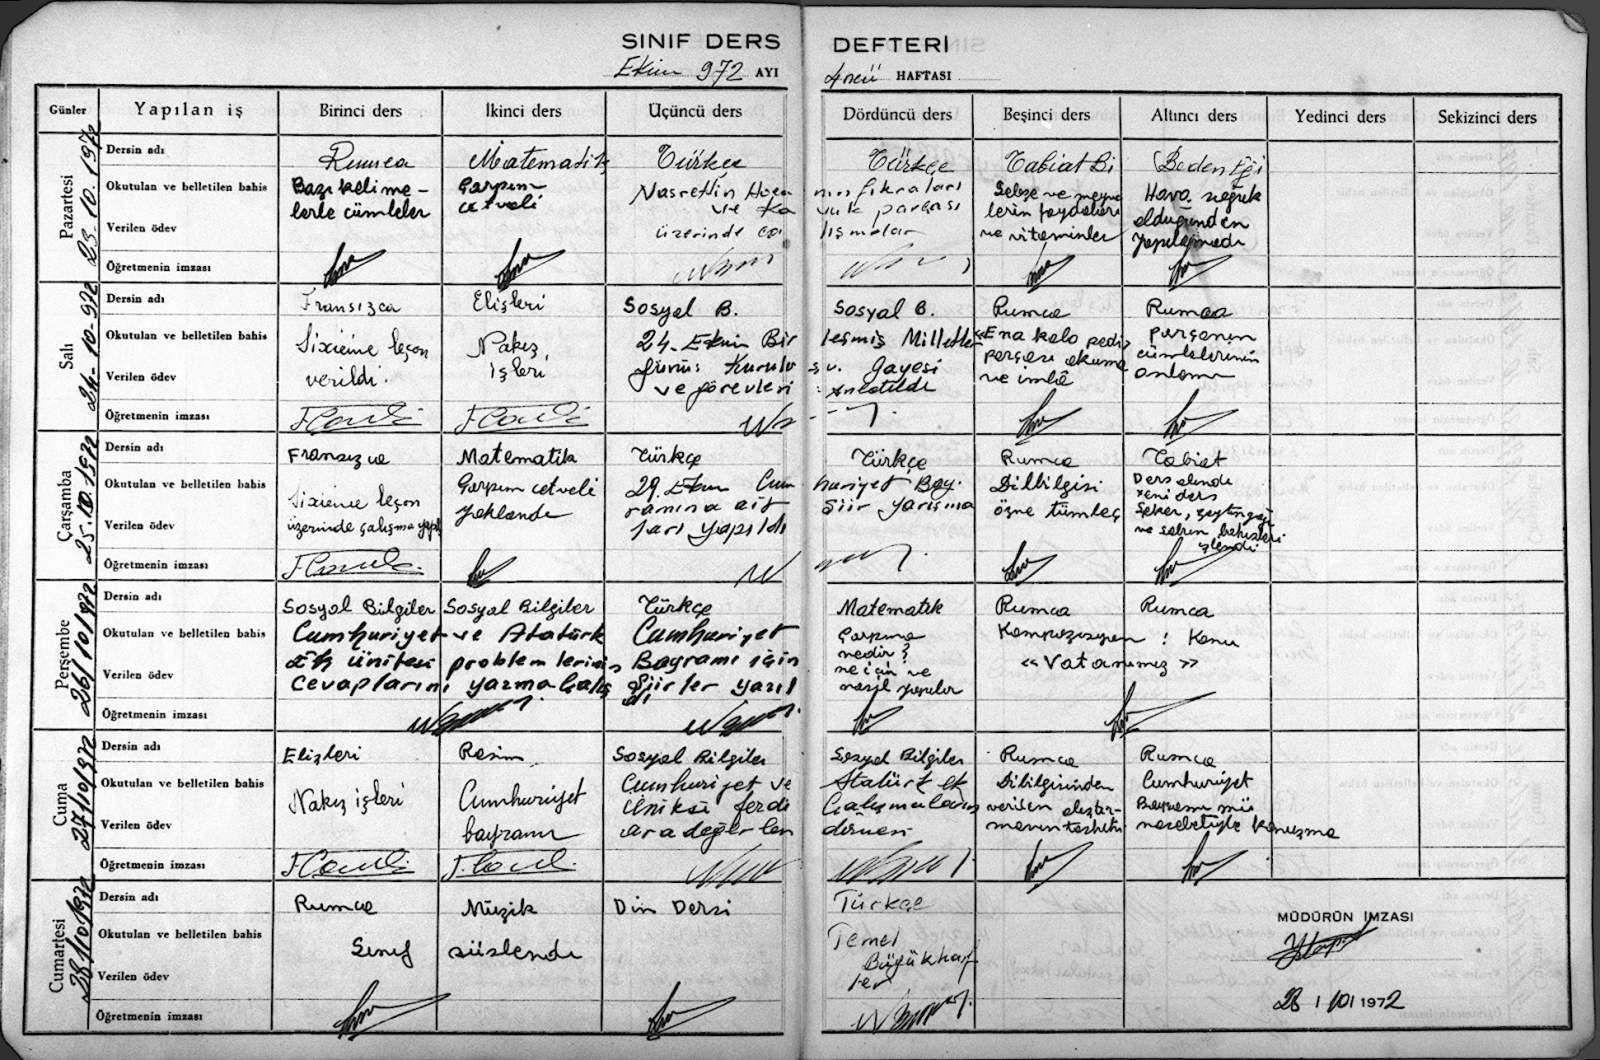 SINIF DERS DEFTERİ
Ekim 972 AYI 4ncü HAFTASI
Günler Yapılan iş Birinci ders İkinci ders Üçüncü ders Dördüncü ders Beşinci ders Altıncı ders Yedinci ders Sekizinci ders
Pazartesi 23.10.1972
Dersin adı Rumca Matematik Türkçe Türkçe Tabiat Bi Beden Eği
Okutulan ve belletilen bahis
Verilen ödev
Bazı kelime-
lerle cümleler
Çarpım
cetveli
Nasrettin Hoca nın fıkraları
ve Ka vuk parçası
üzerinde ça lışmalar
Sebze ve meyve
lerin faydaları
ve vitaminler
Hava soğuk
olduğundan
yapılamadı
Öğretmenin imzası
Salı 24-10-972
Dersin adı Fransızca Elişleri Sosyal B. Sosyal B. Rumca Rumca
Okutulan ve belletilen bahis
Verilen ödev
Sixième leçon
verildi.
Nakış
işleri
24-Ekim Bir leşmiş Milletler
günü: Kuruluşu. Gayesi
ve görevleri anlatıldı
Ena kalo pedi
parçası okuma
ve imlâ
parçanın
cümlelerinin
anlamı
Öğretmenin imzası
Çarşamba 25.10.1972
Dersin adı Fransızca Matematik Türkçe Türkçe Rumca Tabiat
Okutulan ve belletilen bahis
Verilen ödev
Sixième leçon
üzerinde çalışma yapıldı
Çarpım cetveli
yoklandı
29.Ekim Cum huriyet Bay.
ramına ait şiir yarışma
ları yapıldı
Dilbilgisi
özne tümleç
Ders alındı
yeni ders
Şeker, zeytinyağı
ve sabun bahisleri
işlendi
Öğretmenin imzası
Perşembe 26/10/1972
Dersin adı Sosyal Bilgiler Sosyal Bilgiler Türkçe Matematik Rumca Rumca
Okutulan ve belletilen bahis
Verilen ödev
Cumhuriyet ve Atatürk
Ek ünitesi problemlerinin
cevaplarını yazma çalış
Cumhuriyet
Bayramı için
Şiirler yazıl
dı
Çarpma
nedir?
ne için ve
nasıl yapılır
Kompozisyon : Konu
«Vatanımız»
Öğretmenin imzası
Cuma 27/10/1972
Dersin adı Elişleri Resim Sosyal Bilgiler Sosyal Bilgiler Rumca Rumca
Okutulan ve belletilen bahis
Verilen ödev
Nakış işleri
Cumhuriyet
bayramı
Cumhuriyet ve Atatürk ek
Çalışmaların
ara değerlen dirmesi
Dilbilgisinden
verilen alıştır-
manın tashihi
Cumhuriyet
Bayramı mü
nasebetiyle konuşma
Öğretmenin imzası
Cumartesi 28/10/1972
Dersin adı Rumca Müzik Din Dersi Türkçe
Okutulan ve belletilen bahis
Verilen ödev
Sınıf süslendi
Temel
Büyük harf
ler
Öğretmenin imzası
MÜDÜRÜN İMZASI
28/10/1972